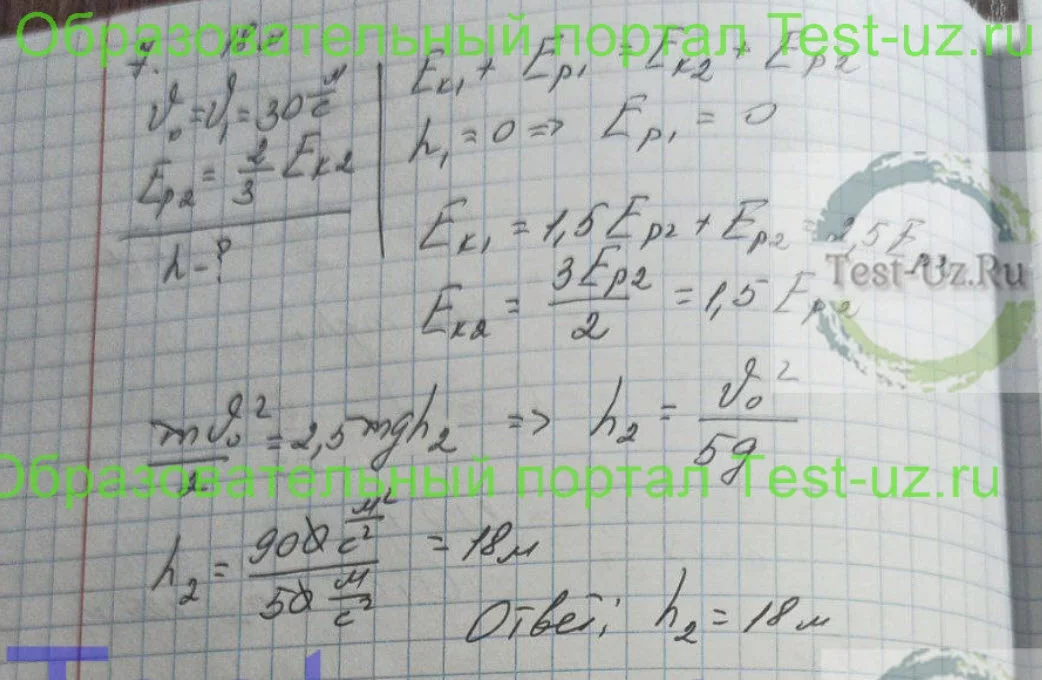 Образовательный портал Test-uz.ru
7.
ϑ₀ = ϑ₁ = 30 м/с
Eр₂ = 2/3 Eк₂
h - ?
Eк₁ + Eр₁ = Eк₂ + Eр₂
h₁ = 0 => Eр₁ = 0
Eк₁ = 1,5 Eр₂ + Eр₂ = 2,5 E
Eк₂ = 3Eр₂/2 = 1,5 Eр₂
Test-Uz.Ru
mϑ₀²/2 = 2,5 mgh₂ => h₂ = ϑ₀²/5g
Образовательный портал Test-uz.ru
h₂ = 900 м²/с² / 50 м/с² = 18 м
Ответ; h₂ = 18 м